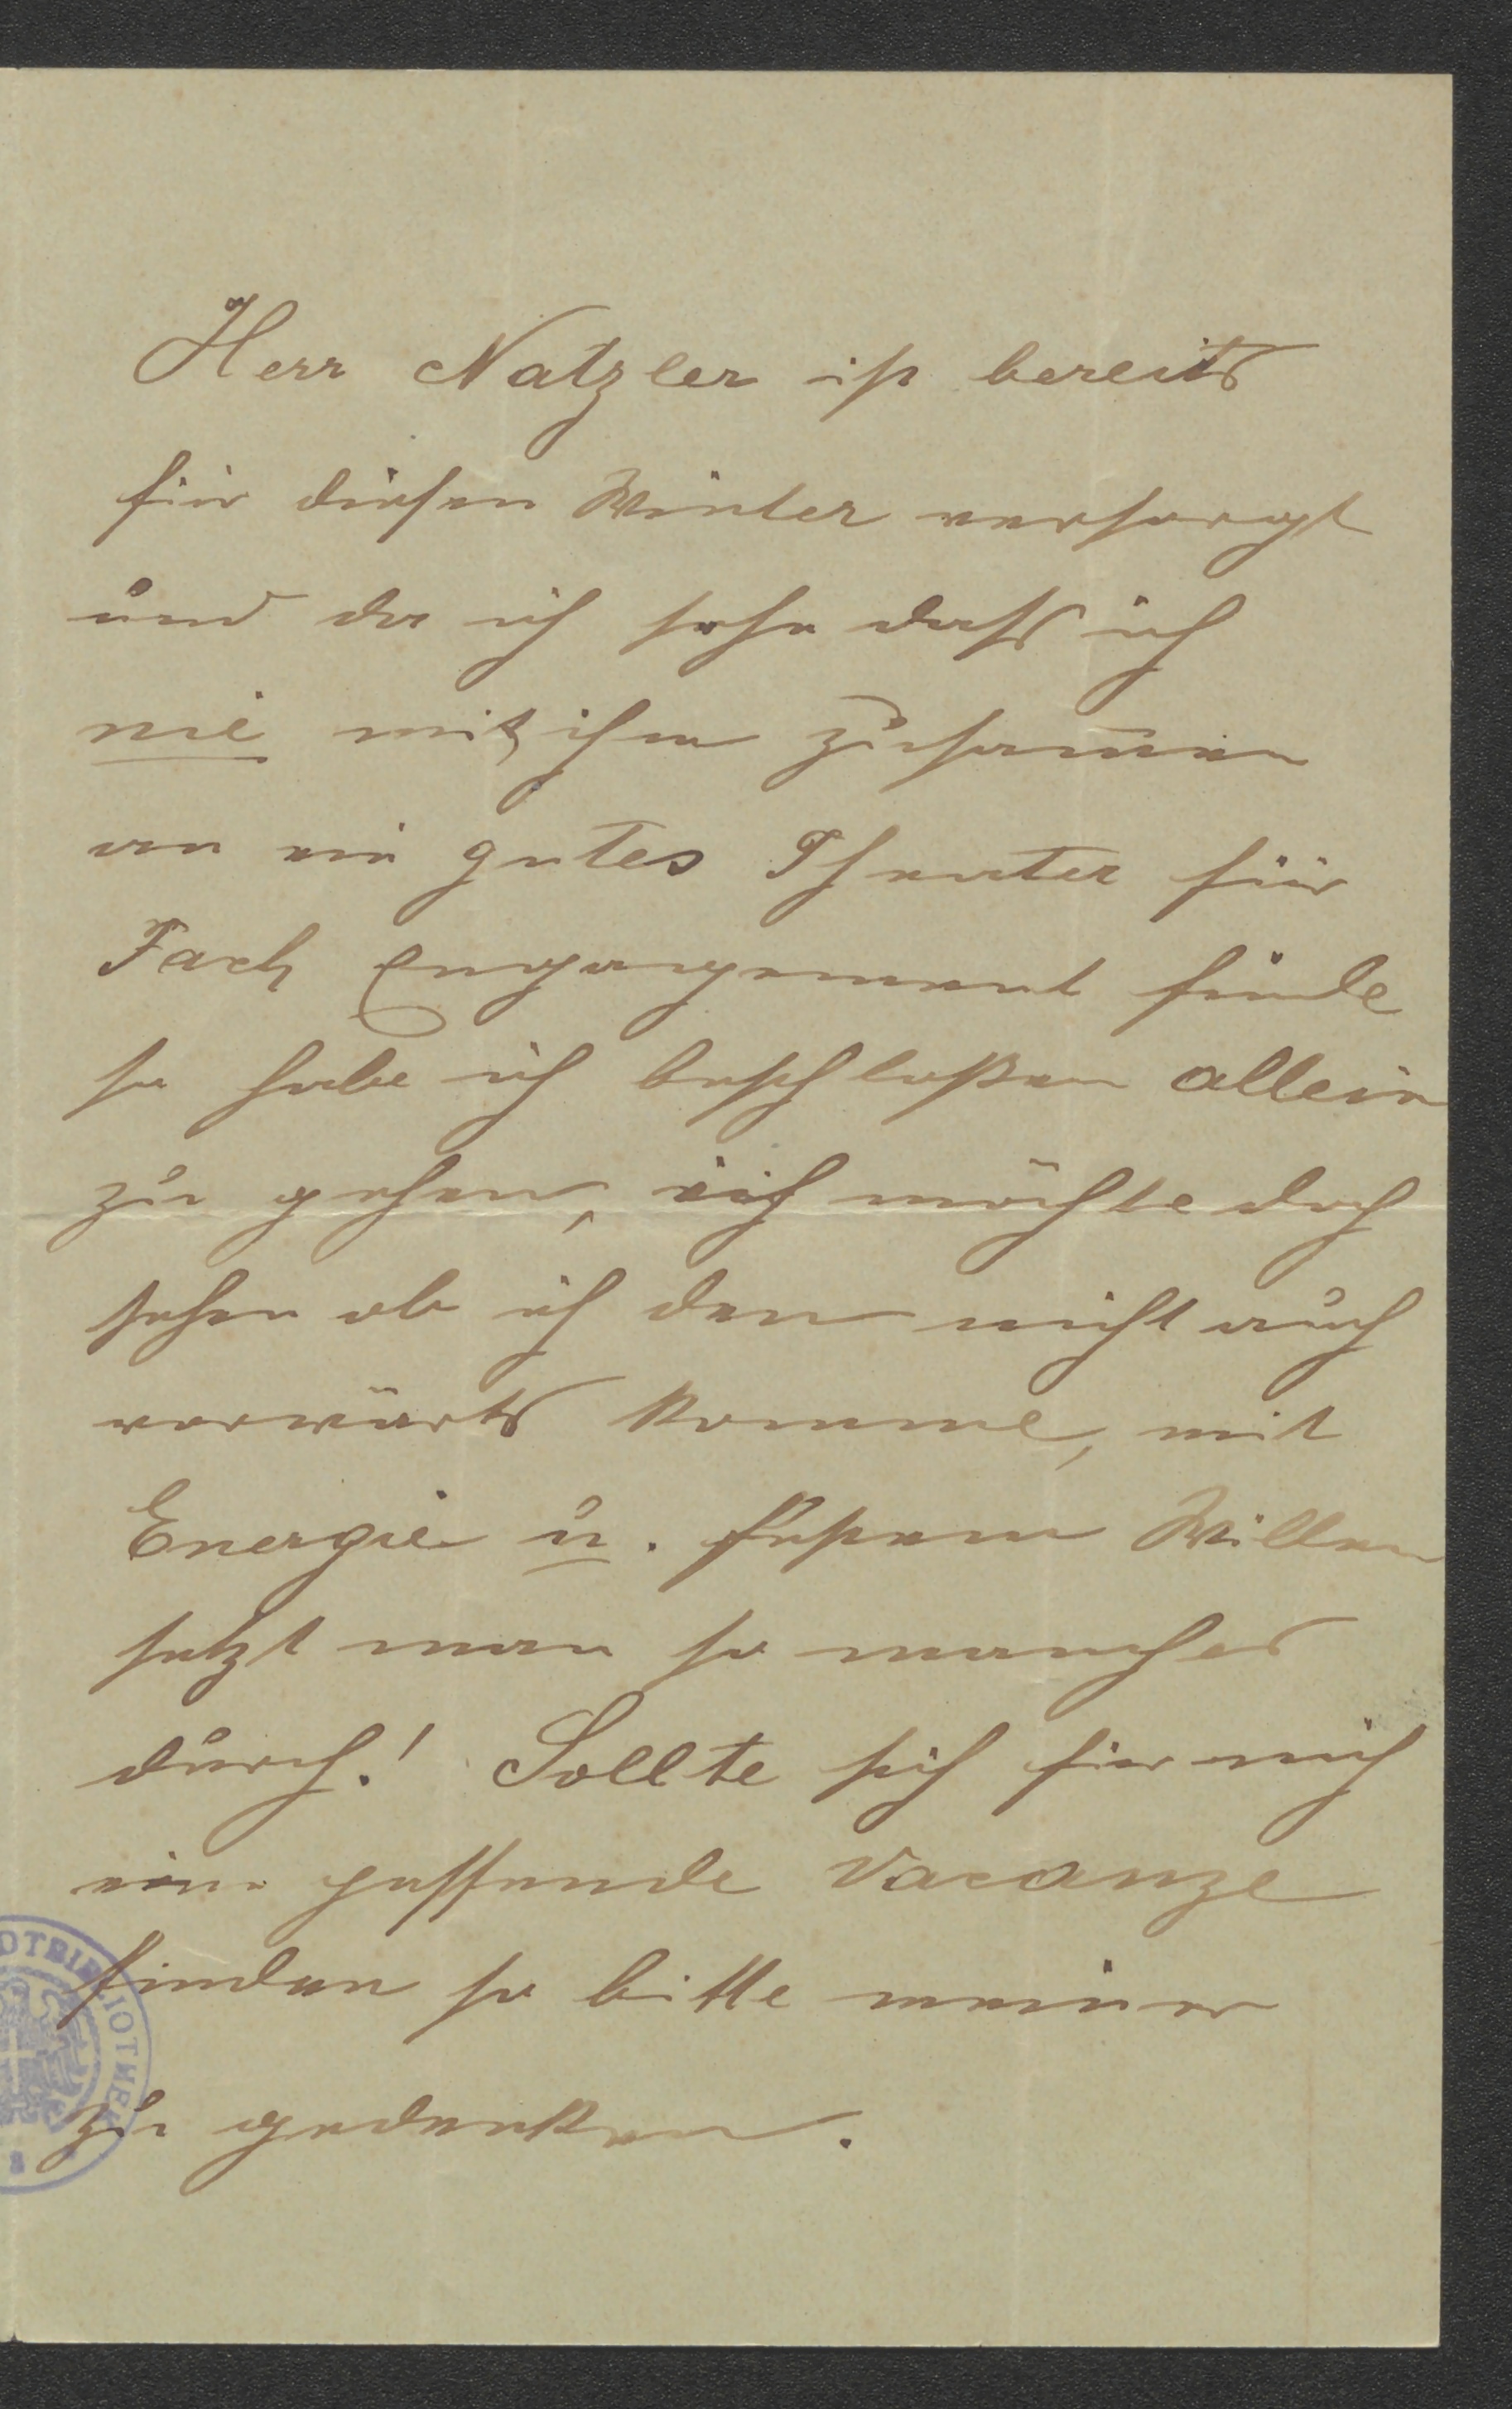 Herr Natzler ist bereits
für diesen Winter versorgt
und da ich sehe dass ich
nie mit ihm zusam̅en
an ein gutes Theater für
Fach Engagement finde
so habe ich beschloßen allein
zu gehen, ich möchte doch
sehen ob ich den nicht auch
vorwärts komme, mit
Energie u. festem Willen
setzt man so manches
durch! Sollte sich für mich
eine passende Vacanze
finden so bitte meiner
zu gedenken.